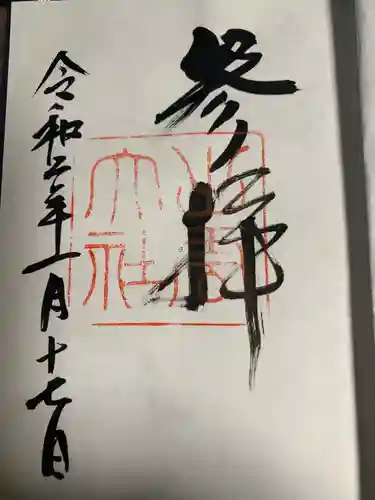 参拝
令和二年一月十七日
大社